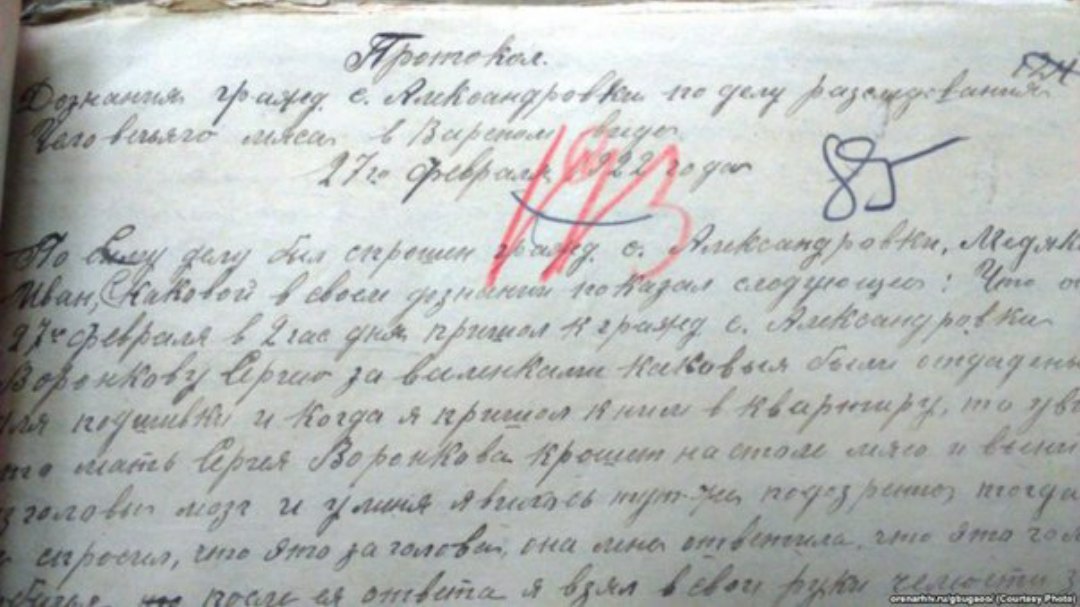 Протокол.
124
Дознания гражд. с. Александровки по делу разследования
Человечьяго мяса в Вареном виде
27го февраля 1922 года
193
85
По сему делу был спрошен гражд. с. Александровки, Медяк
Иван, С каковой в своем дознании показал следующее: Что
27го февраля в 2 час дня пришол к гражд с. Александровки
Воронкову Сергию за валенками каковыя были отдадены
для подшивки и когда я пришол к ним в квартиру, то уви
что мать Сергея Воронкова крошит на столе мясо и выни
з головы мозг и у меня явилось тут-же подозрение тогда
я спросил, что это за голова, она мне ответила, что это
после ея ответа я взял в свои руки челюсти
orenarhiv.ru/gbugaoo/ (Courtesy Photo)